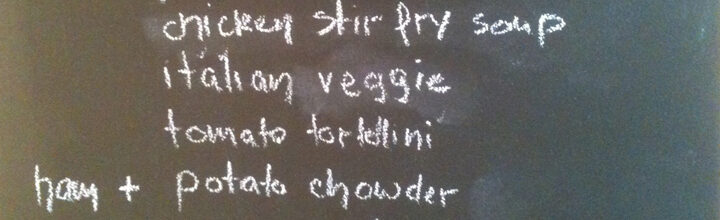 chicken stir fry soup
italian veggie
tomato tortellini
ham + potato chowder